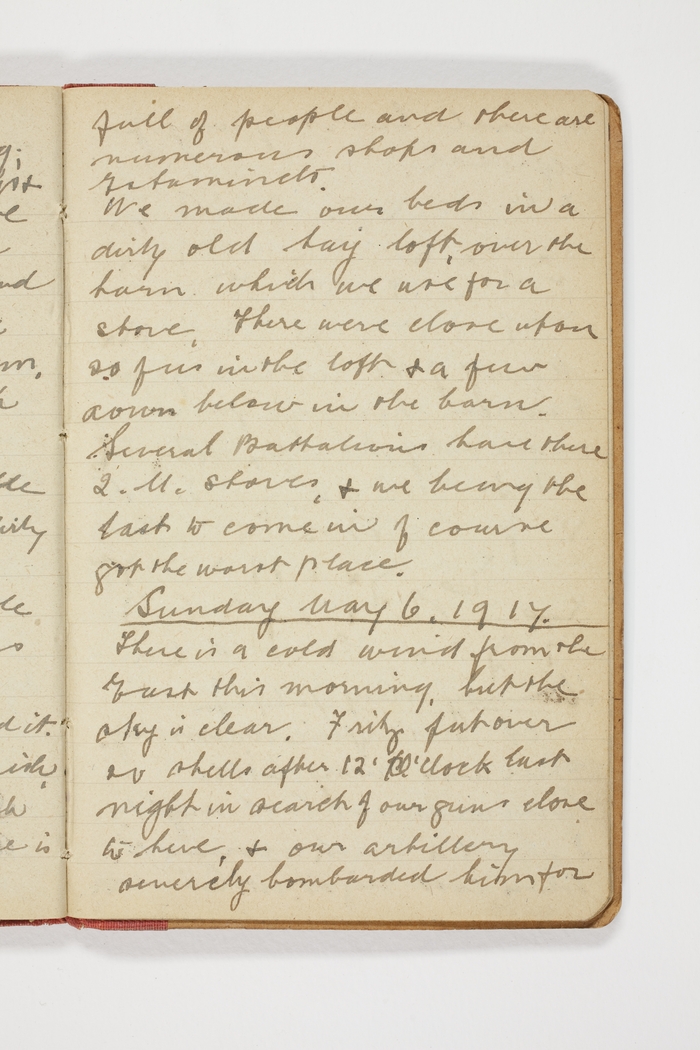 full of people and there are
numerous shops and
Estaminets.
We made our beds in a
dirty old hay loft, over the
barn which we use for a
store. There were close upon
50 of us in the loft & a few
down below in the barn.
Several Battalions have there
Q. M. stores, & we being the
last to come in of course
got the worst place.
Sunday May 6. 1917.
There is a cold wind from the
East this morning, but the
sky is clear. Fritz put over
shells after 12 O'Clock last
night in search of our guns close
to here, & our artillery
severely bombarded him for